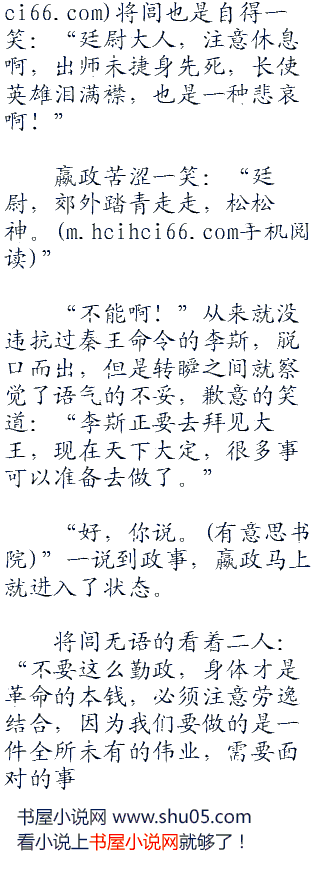 ci66.com)将闾也是自得一
笑：“廷尉大人，注意休息
啊，出师未捷身先死，长使
英雄泪满襟，也是一种悲哀
啊！”
嬴政苦涩一笑：“廷
尉，郊外踏青走走，松松
神。(m.hcihci66.com手机阅
读)”
“不能啊！”从来就没
违抗过秦王命令的李斯，脱
口而出，但是转瞬之间就察
觉了语气的不妥，歉意的笑
道：“李斯正要去拜见大
王，现在天下大定，很多事
可以准备去做了。”
“好，你说。(有意思书
院)”一说到政事，嬴政马上
就进入了状态。
将闾无语的看着二人：
“不要这么勤政，身体才是
革命的本钱，必须注意劳逸
结合，因为我们要做的是一
件全所未有的伟业，需要面
对的事
书屋小说网 www.shu05.com
看小说上书屋小说网就够了！